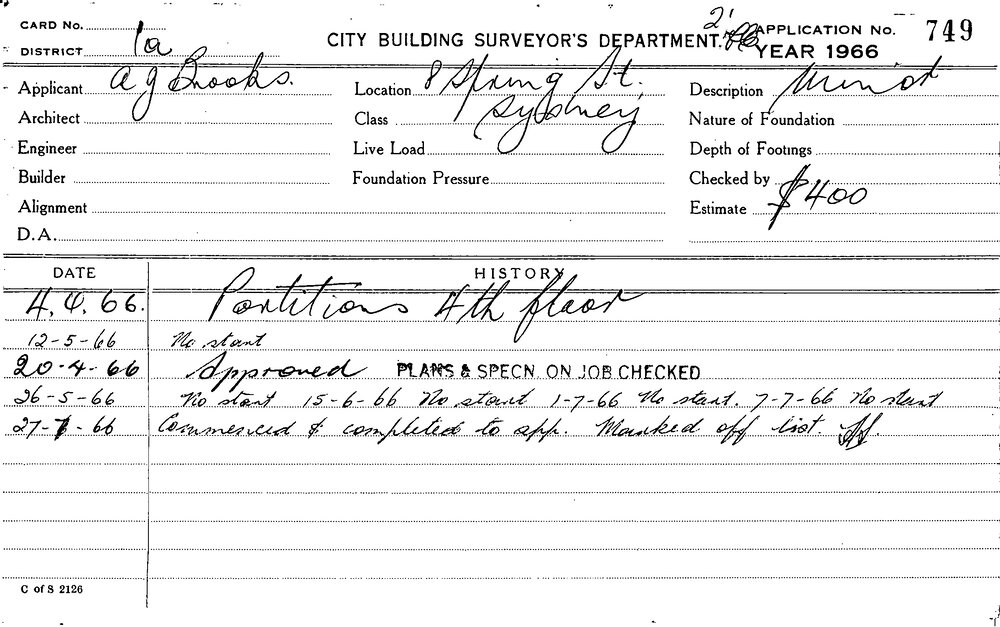 CARD No.
DISTRICT 1a
CITY BUILDING SURVEYOR'S DEPARTMENT.
2'
APPLICATION No. 749
YEAR 1966
Applicant A G Brooks.
Location 8 Spring St.
Description Minor
Architect
Class Sydney
Nature of Foundation
Engineer
Live Load
Depth of Footings
Builder
Foundation Pressure
Checked by
Alignment
Estimate $400
D.A.
DATE HISTORY
4.4.66. Partitions 4th floor
12-5-66 No start
20-4-66 Approved PLANS & SPECN. ON JOB CHECKED
26-5-66 No start 15-6-66 No start 1-7-66 No start. 7-7-66 No start
27-7-66 Commenced & completed to app. Marked off list.
C of S 2126